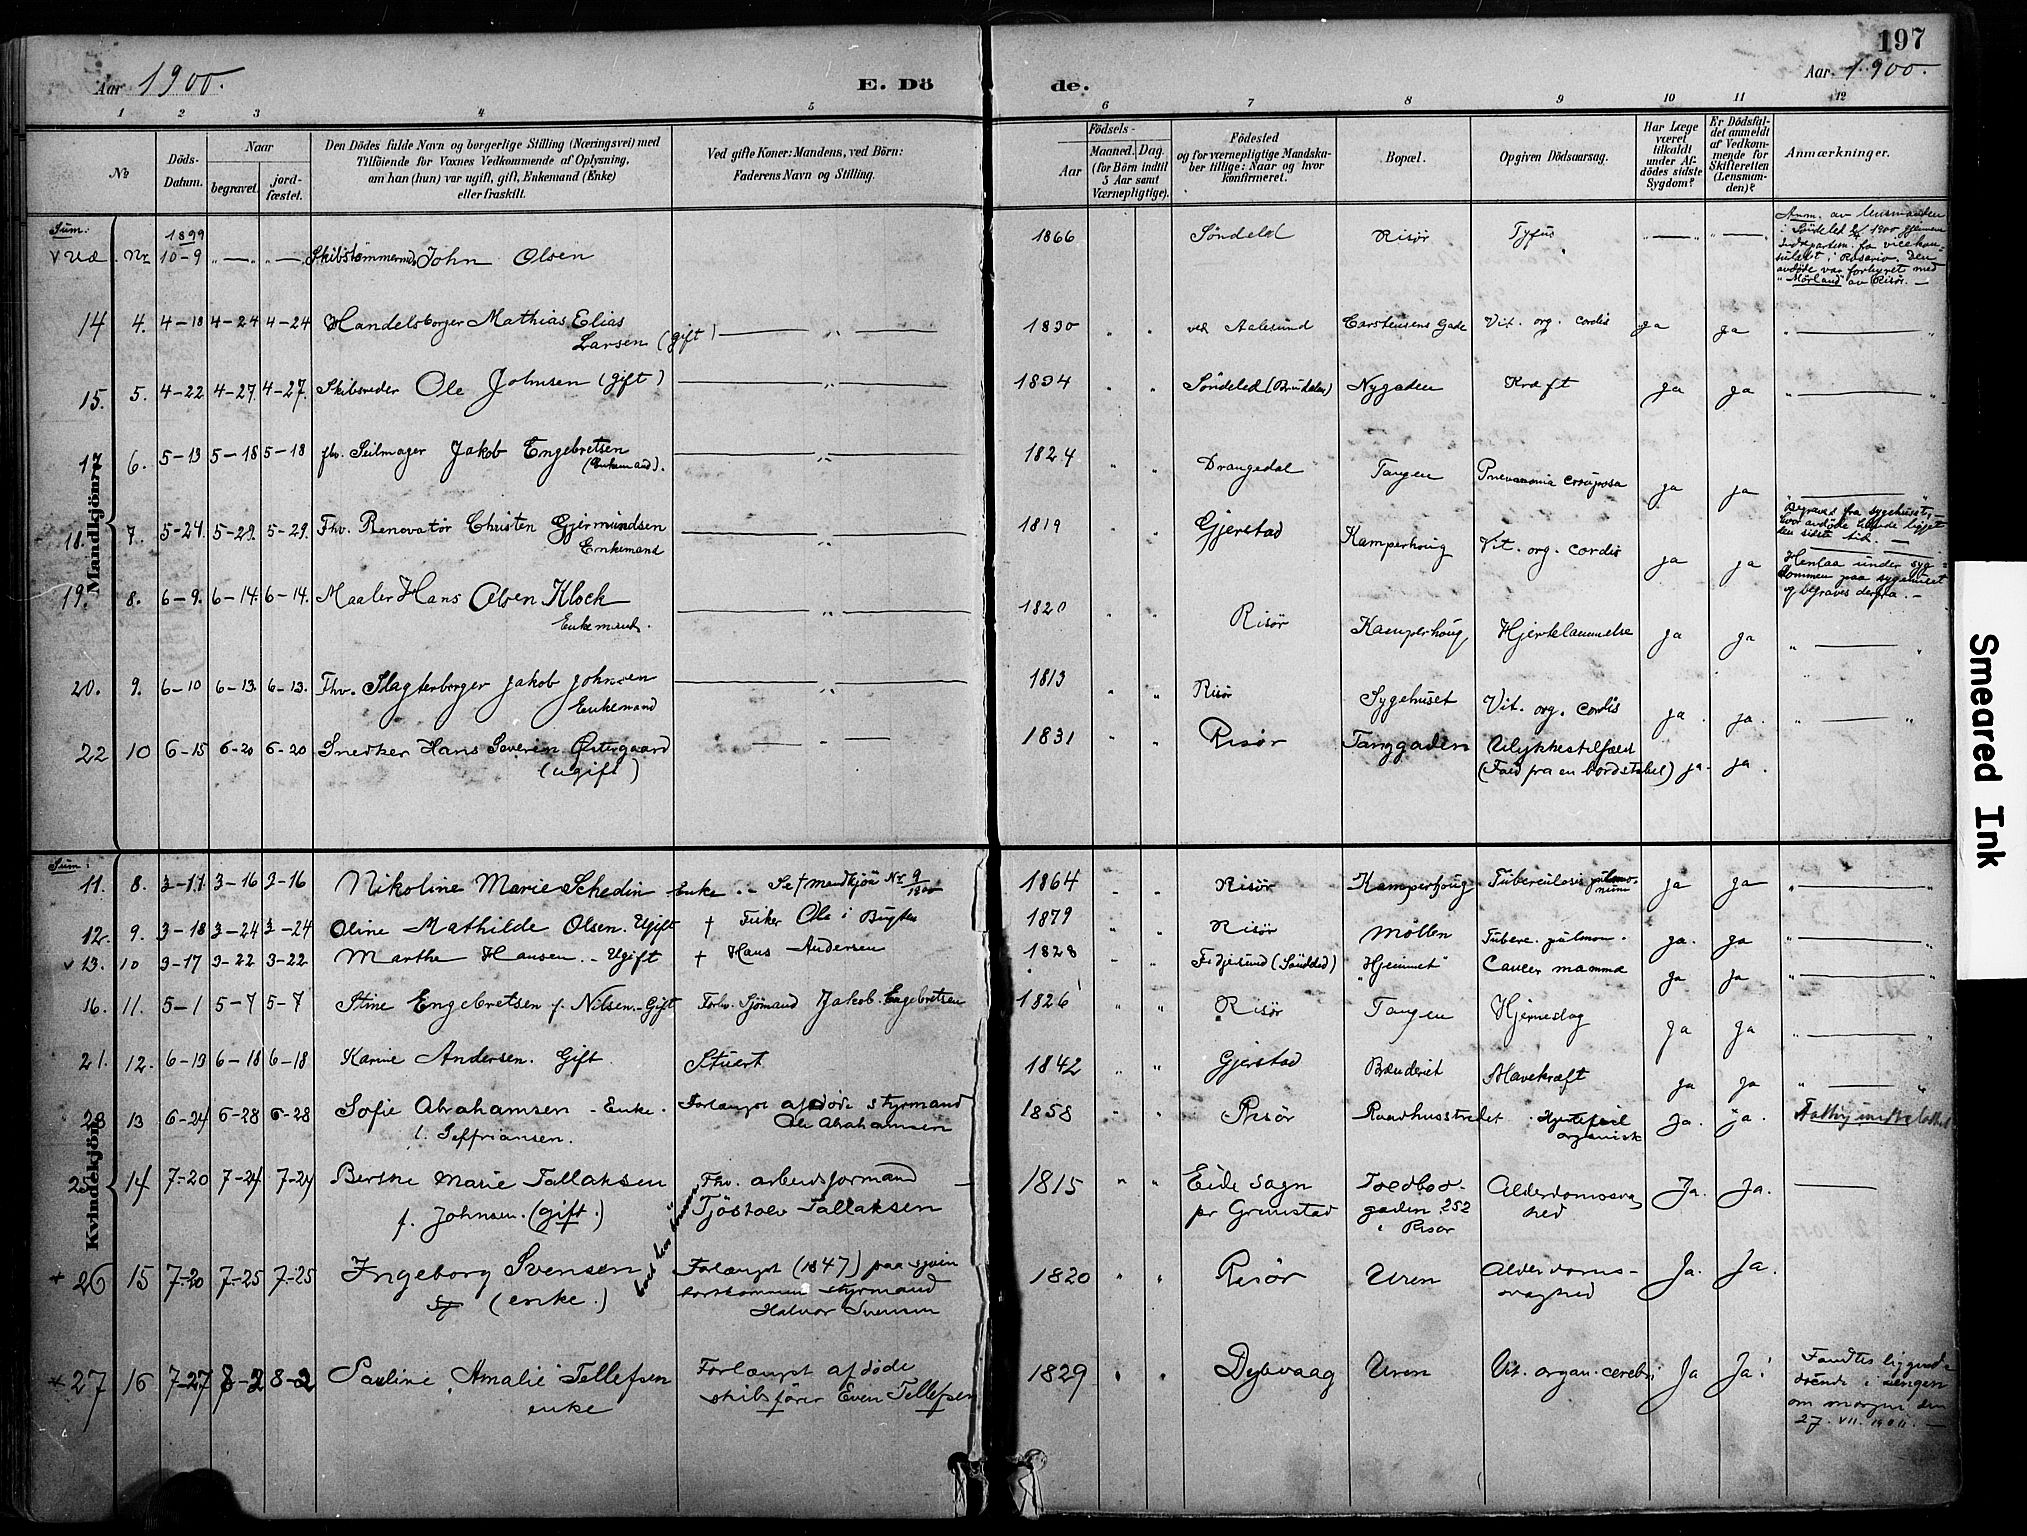 197
Aar 1900.
E. Dö
de.
Aar 1900.
1 2 3 4 5 6 7 8 9 10 11 12
No
Döds-
Datum.
Naar
begravet.
jord-
fæstet.
Den Dödes fulde Navn og borgerlige Stilling (Næringsvei) med
Tilföiende for Voxnes Vedkommende af Oplysning,
om han (hun) var ugift, gift, Enkemand (Enke)
eller fraskilt.
Ved gifte Koner: Mandens, ved Börn:
Faderens Navn og Stilling.
Födsels-
Aar
Maaned. Dag.
(for Börn indtil
5 Aar samt
Værnepligtige).
Födested
og for værnepligtige Mandska-
ber tillige: Naar og hvor
konfirmeret.
Bopæl.
Opgiven Dödsaarsag.
Har Læge
været
tilkaldt
under Af-
dödes sidste
Sygdom?
Er Dödsfal-
det anmeldt
af Vedkom-
mende for
Skifteretten
(Lensman-
den)?
Anmærkninger.
Mandkjön.
Sum:
1899
10-9 John Olsen 1866 Söndeled Risør Tyfus
Anm. av lensmanden
i Söndeled 1900 gjennem
avdöde var forhyret med
"Mörland" av Risör. —
14 4. 4-18 4-24 4-24 Handelsborger Mathias Elias
Larsen (gift) 1830 ved Aalesund Carstensens Gade Vit. org. cordis ja ja
15. 5. 4-22 4-27 4-27. Skibsreder Ole Johnsen (gift) 1834 Söndeled Nygaden Kræft ja ja
17 6. 5-13 5-18 5-18 fhv. Seilmager Jakob Engebretsen
(Enkemand). 1824 Drangedal Tangen Pneumonia crouposa ja ja
18. 7. 5-24. 5-29. 5-29. Fhv. Renovatør Christen Gjermundsen
Enkemand 1819 Gjerstad Kamperhoug Vit. org. cordis ja ja
Begraves fra sygehuset,
hvor avdöde havde ligget
den sidste tid. —
19. 8. 6-9. 6-14. 6-14. Maaler Hans Olsen Klock
Enkemand. 1820 Risør Kamperhoug Hjertelammelse ja ja
Henlaa under syg-
dommen paa sygehuset
og begraves derfra. —
20. 9. 6-10 6-13. 6-13. Fhv. Slagterborger Jakob Johnsen
Enkemand 1813 Risør Sygehuset Vit. org. cordis ja ja.
22 10 6-15 6-20 6-20 Snedker Hans Severin Östergaard
(ugift) 1831 Risør Tanggaden Ulykkestilfæld
(Fald fra en bordstabel) ja. ja.
Kvindekjön.
Sum:
11. 8. 3-11 3-16 3-16 Nikoline Marie Schedin Enke .- Se mandkjön Nr 9/1900 1864 Risør Kamperhoug Tuberculosis pulmo-
num ja ja
12. 9. 3-18 3-24 3-24 Oline Mathilde Olsen. Ugift + Fisker Ole i Bugten 1879 Risør Möllen Tuberc. pulmon. ja. ja
13. 10 3-17 3-22 3-22 Marthe Hansen. - Ugift + Hans Andersen 1828 "Hjemmet" Cancer mammæ ja ja
16. 11. 5-1 5-7 5-7 Stine Engebretsen f. Nilsen. - Gift Forhv. Sjömand Jakob Engebretsen 1826 Risør Tangen Hjerneslag ja ja
21. 12. 6-13 6-18 6-18 Karine Andersen. Gift. Stuert 1842 Gjerstad Brænderiet Mavekræft ja ja
23 13 6-24 6-28 6-28 Sofie Abrahamsen - Enke. Forlængst afdöde styrmand
Ole Abrahamsen 1858 Risör Raadhusstrædet Hjertefeil
organisk Ja. ja.
25 14 7-20 7-24 7-24 Berthe Marie Tallaksen
f. Johnsen. (gift.) Fhv. arbeidsformand
Tjöstolv Tallaksen 1815 Eide sogn
pr Grimstad Toldbod-
gaden 252
i Risør Alderdomssvag
hed Ja. Ja.
26 15 7-20 7-25 7-25 Ingeborg Svensen
(enke.) Forlængst (1847) paa sjøen
bortkommen styrmand
Halvor Svensen 1820 Risör Uren Alderdoms-
svaghed Ja. Ja.
27 16 7-27 8-2 8-2 Pauline Amalie Tellefsen
enke Forlængst afdöde
skibsfører Even Tellefsen 1829 Dybvaag Uren Vit. organ. cerebri Ja Ja.
Fandtes liggende
døende i sengen
om morgen den
27. VII. 1900. —
Smeared Ink